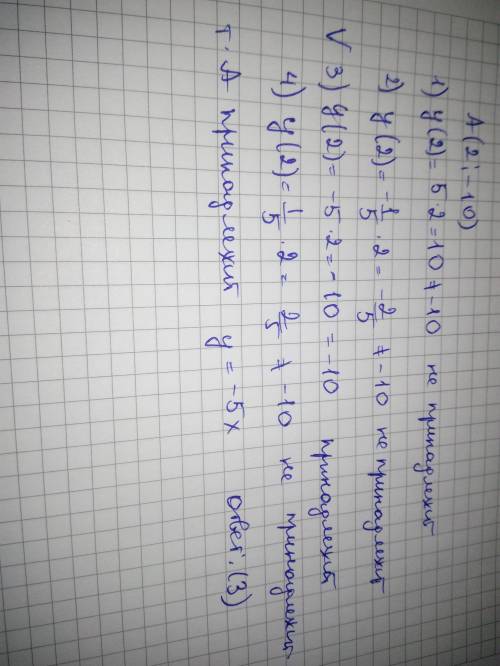 A (2; -10)
1) y(2) = 5·2 = 10 ≠ -10 не принадлежит
2) y(2) = -1/5 · 2 = -2/5 ≠ -10 не принадлежит
V 3) y(2) = -5·2 = -10 = -10 принадлежит
4) y(2) = 1/5 · 2 = 2/5 ≠ -10 не принадлежит
т. А принадлежит y = -5x ответ: (3)